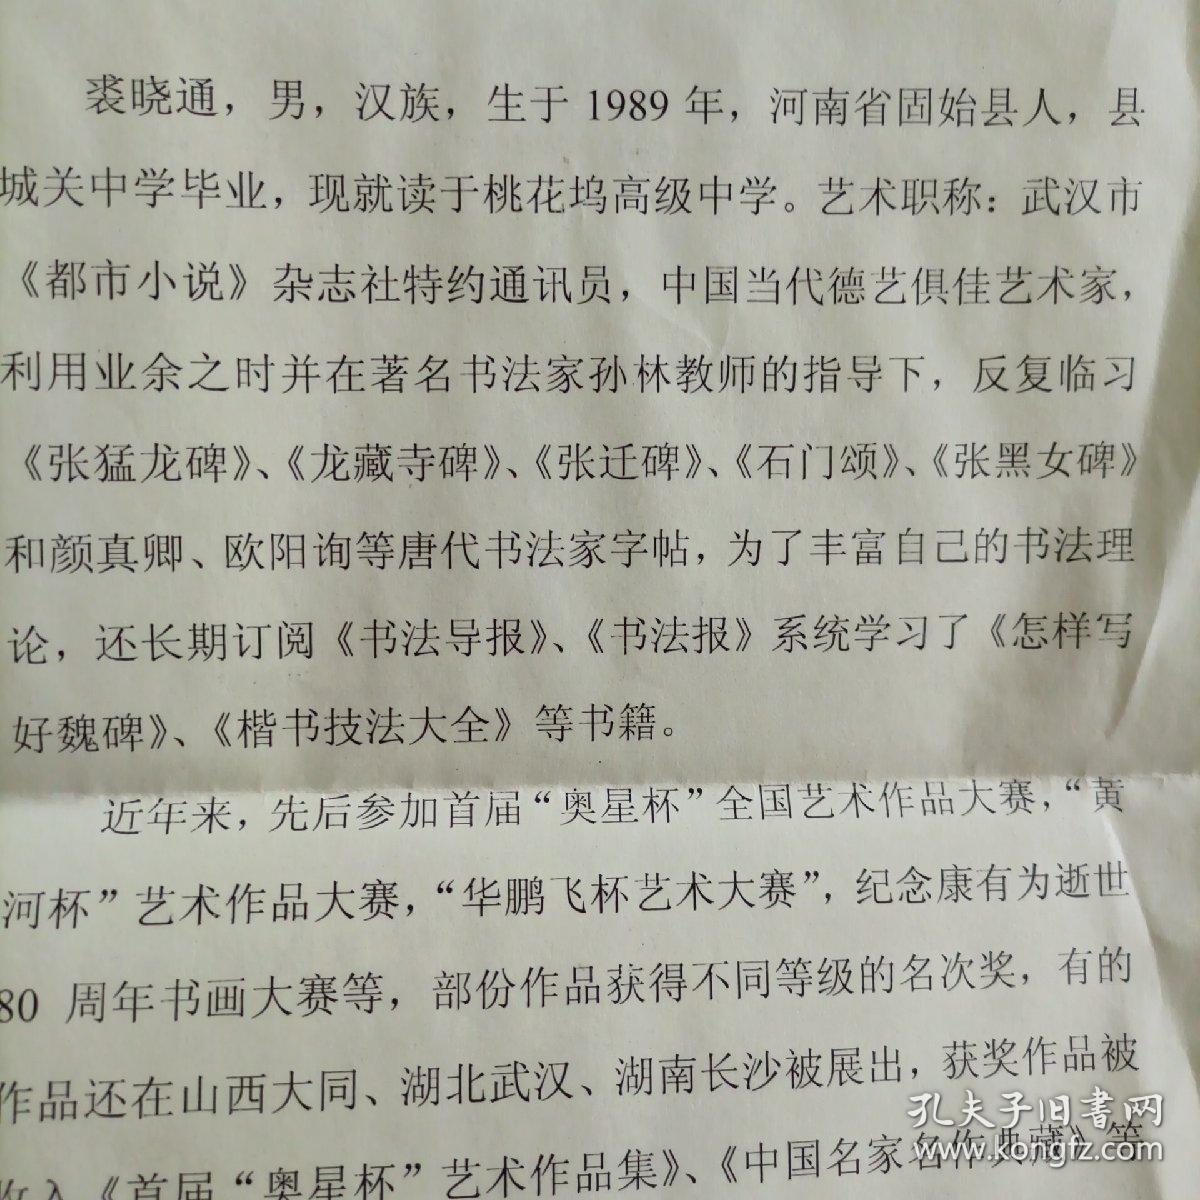 裘晓通，男，汉族，生于 1989 年，河南省固始县人，县
城关中学毕业，现就读于桃花坞高级中学。艺术职称：武汉市
《都市小说》杂志社特约通讯员，中国当代德艺俱佳艺术家，
利用业余之时并在著名书法家孙林教师的指导下，反复临习
《张猛龙碑》、《龙藏寺碑》、《张迁碑》、《石门颂》、《张黑女碑》
和颜真卿、欧阳询等唐代书法家字帖，为了丰富自己的书法理
论，还长期订阅《书法导报》、《书法报》系统学习了《怎样写
好魏碑》、《楷书技法大全》等书籍。
近年来，先后参加首届“奥星杯”全国艺术作品大赛，“黄
河杯”艺术作品大赛，“华鹏飞杯艺术大赛”，纪念康有为逝世
80 周年书画大赛等，部份作品获得不同等级的名次奖，有的
作品还在山西大同、湖北武汉、湖南长沙被展出，获奖作品被
收入《首届“奥星杯”艺术作品集》、《中国名家名作典藏》等
孔夫子旧书网
www.kongfz.com